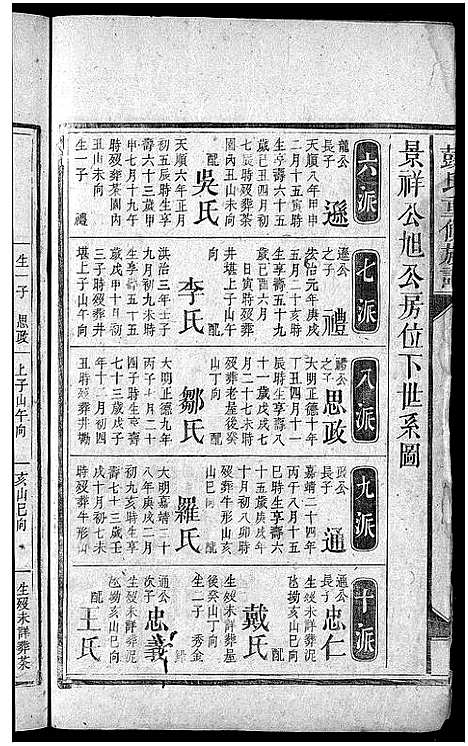 景祥公旭公房位下世系圖
六派
龍公
長子
遜
天順八年甲申
二月十五寅時
生享壽六十五
歲已丑四月初
七辰時歿葬茶
園內丑山未向
配
吳氏
天順六年正月
初五辰時生享
壽六十三歲甲
申七月十九午
時歿葬茶園內
丑山未向
生一子
禮
七派
遜公
之子
禮
弘治元年庚戌
五月二十亥時
生享壽五十九
歲已酉六月
寅時歿葬
井堪上子山午
向
配
李氏
洪治三年壬子
九月初九未時
生享壽五十五
歲戌甲十月初
三子時歿葬井
堪上子山午向
生一子
思政
八派
禮公
之子
思政
大明正德十年
丁丑四月十一
辰時生享壽八
十一歲戊戌七
月二十七未時
歿葬老屋後癸
山丁向
配
鄒氏
大明正德九年
丙子七月二十
四子時生享壽
七十三歲戊子
年十二月初四
丑時歿葬井墈
上子山午向
九派
政公
之子
通
嘉靖二十四年
丙午八月十五
巳時生享壽六
十五歲庚戌年
十月初八卯時
歿葬牛形山亥
山巳向
配
羅氏
大明嘉靖二十
八年庚戌二月
初九亥時生享
壽七十三歲壬
戌十月初七未
時歿葬牛形山
亥山巳向
十派
通公
長子
忠仁
生歿未詳葬泥
氹坳亥山巳向
配
戴氏
生歿未詳葬屋
後癸山丁向
生一子
秀金
通公
次子
忠義
生歿未詳葬泥
氹坳亥山巳向
配
王氏
生歿未詳葬茶